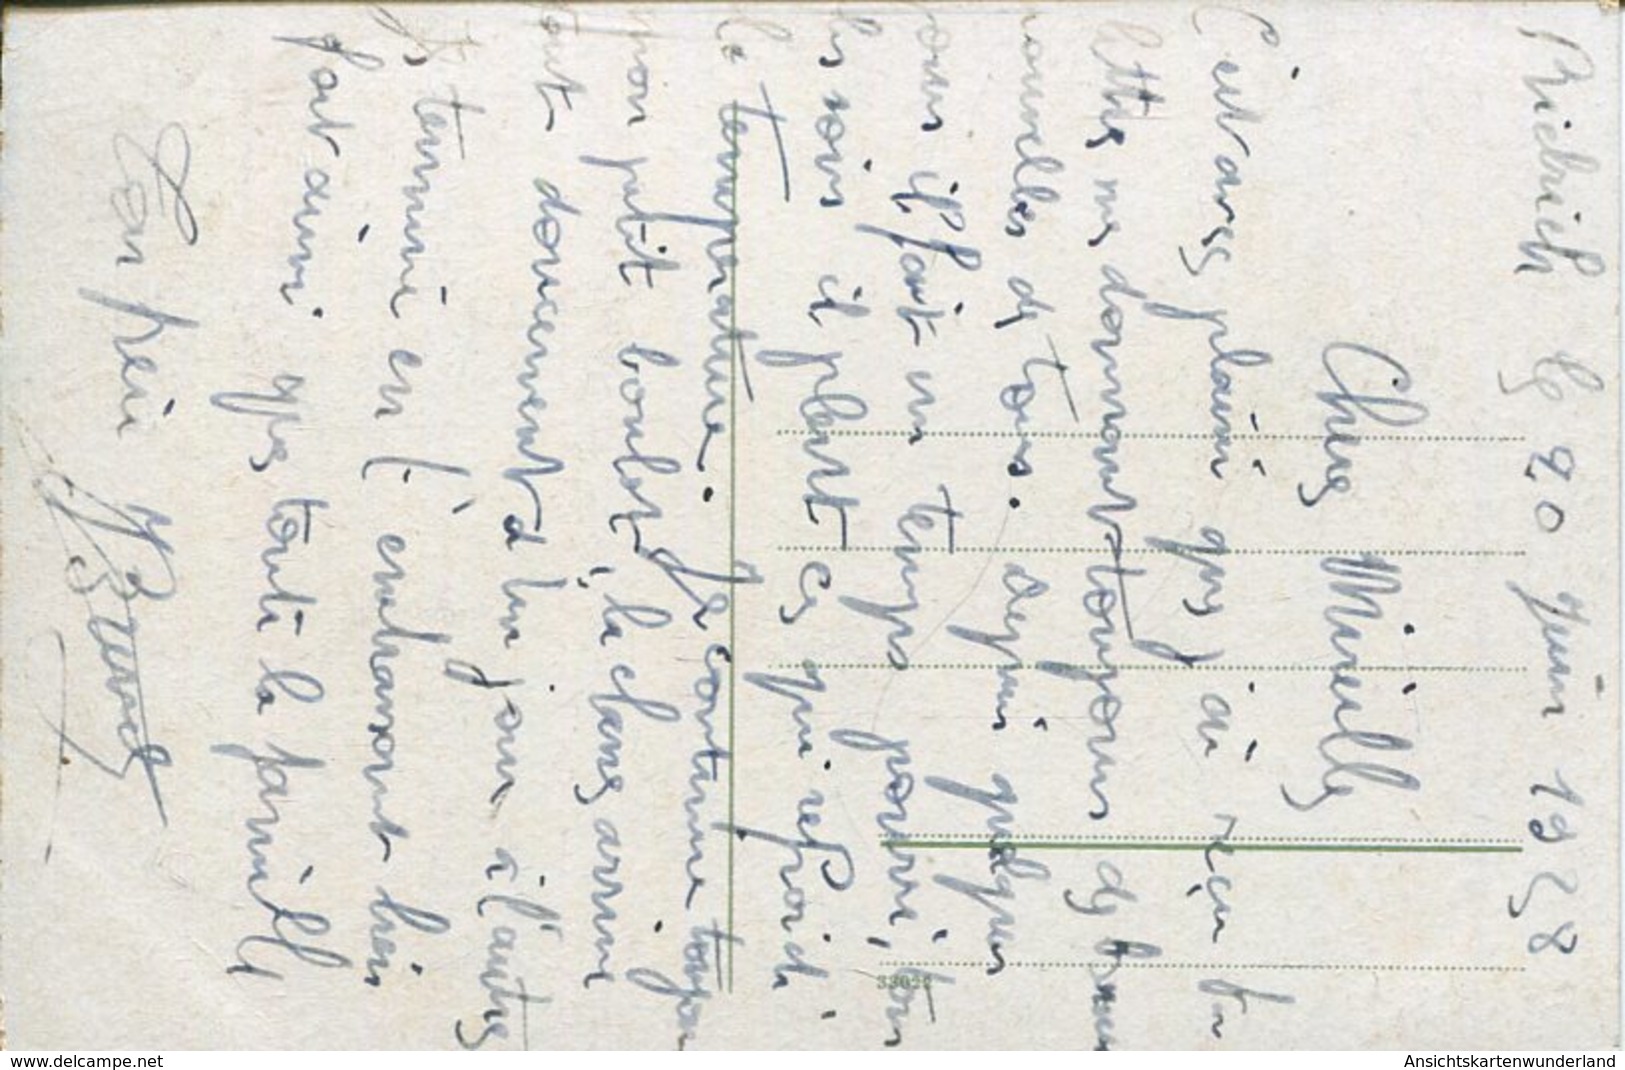 Biebrich le 20 Juin 1928
Chere Mireille
C'est avec plaisir que j'ai reçu ta
lettre me donnant toujours de bonnes
nouvelles de tous. depuis quelques
jours il fait un temps pourri, tous
les soirs il pleut ce qui refroidi
la température. Je continue toujours
mon petit boulot, la classe arrive
tout doucement d'un jour à l'autre
Je termine en t'embrassant bien
fort ainsi que toute la famille
Ton frère
33022
www.delcampe.net
Ansichtskartenwunderland